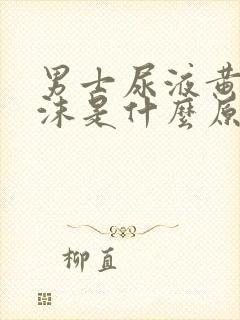 男士尿液黄
沫是什麽原
柳直